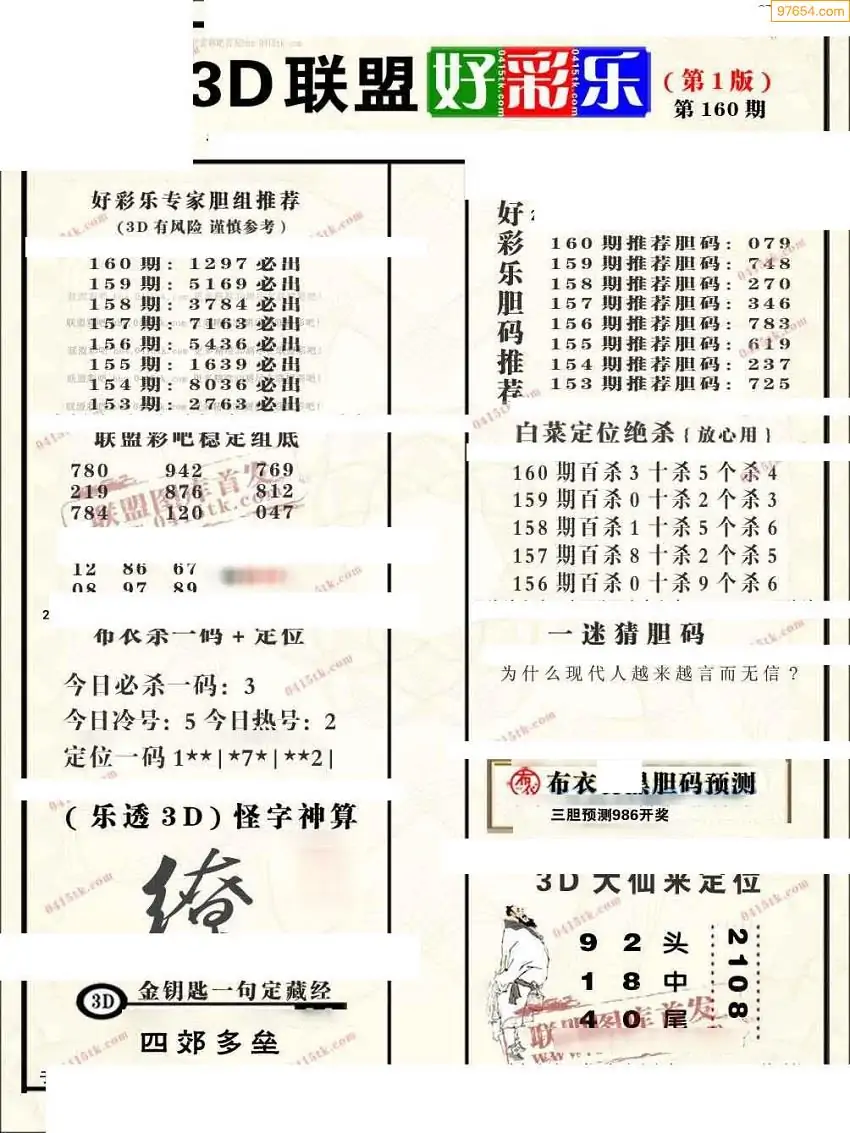 97654.com
3D联盟好彩乐
(第1版)
第160期
好彩乐专家胆组推荐
(3D有风险 谨慎参考)
160期:1297必出
159期:5169必出
158期:3784必出
157期:7163必出
156期:5436必出
155期:1639必出
154期:8036必出
153期:2763必出
联盟彩吧稳定组底
780 942 769
219 876 812
784 120 047
12 86 67
08 97 89
布衣杀一码+定位
今日必杀一码:3
今日冷号:5 今日热号:2
定位一码1**|*7*|**2|
(乐透3D)怪字神算
3D
金钥匙一句定藏经
四郊多垒
好彩乐胆码推荐
160期推荐胆码:079
159期推荐胆码:748
158期推荐胆码:270
157期推荐胆码:346
156期推荐胆码:783
155期推荐胆码:619
154期推荐胆码:237
153期推荐胆码:725
白菜定位绝杀{放心用}
160期百杀3十杀5个杀4
159期百杀0十杀2个杀3
158期百杀1十杀5个杀6
157期百杀8十杀2个杀5
156期百杀0十杀9个杀6
一迷猜胆码
为什么现代人越来越言而无信?
布衣 胆码预测
三胆预测986开奖
3D大仙来定位
9 2 头
1 8 中
4 0 尾
2108
联盟图库首发
0415tk.com